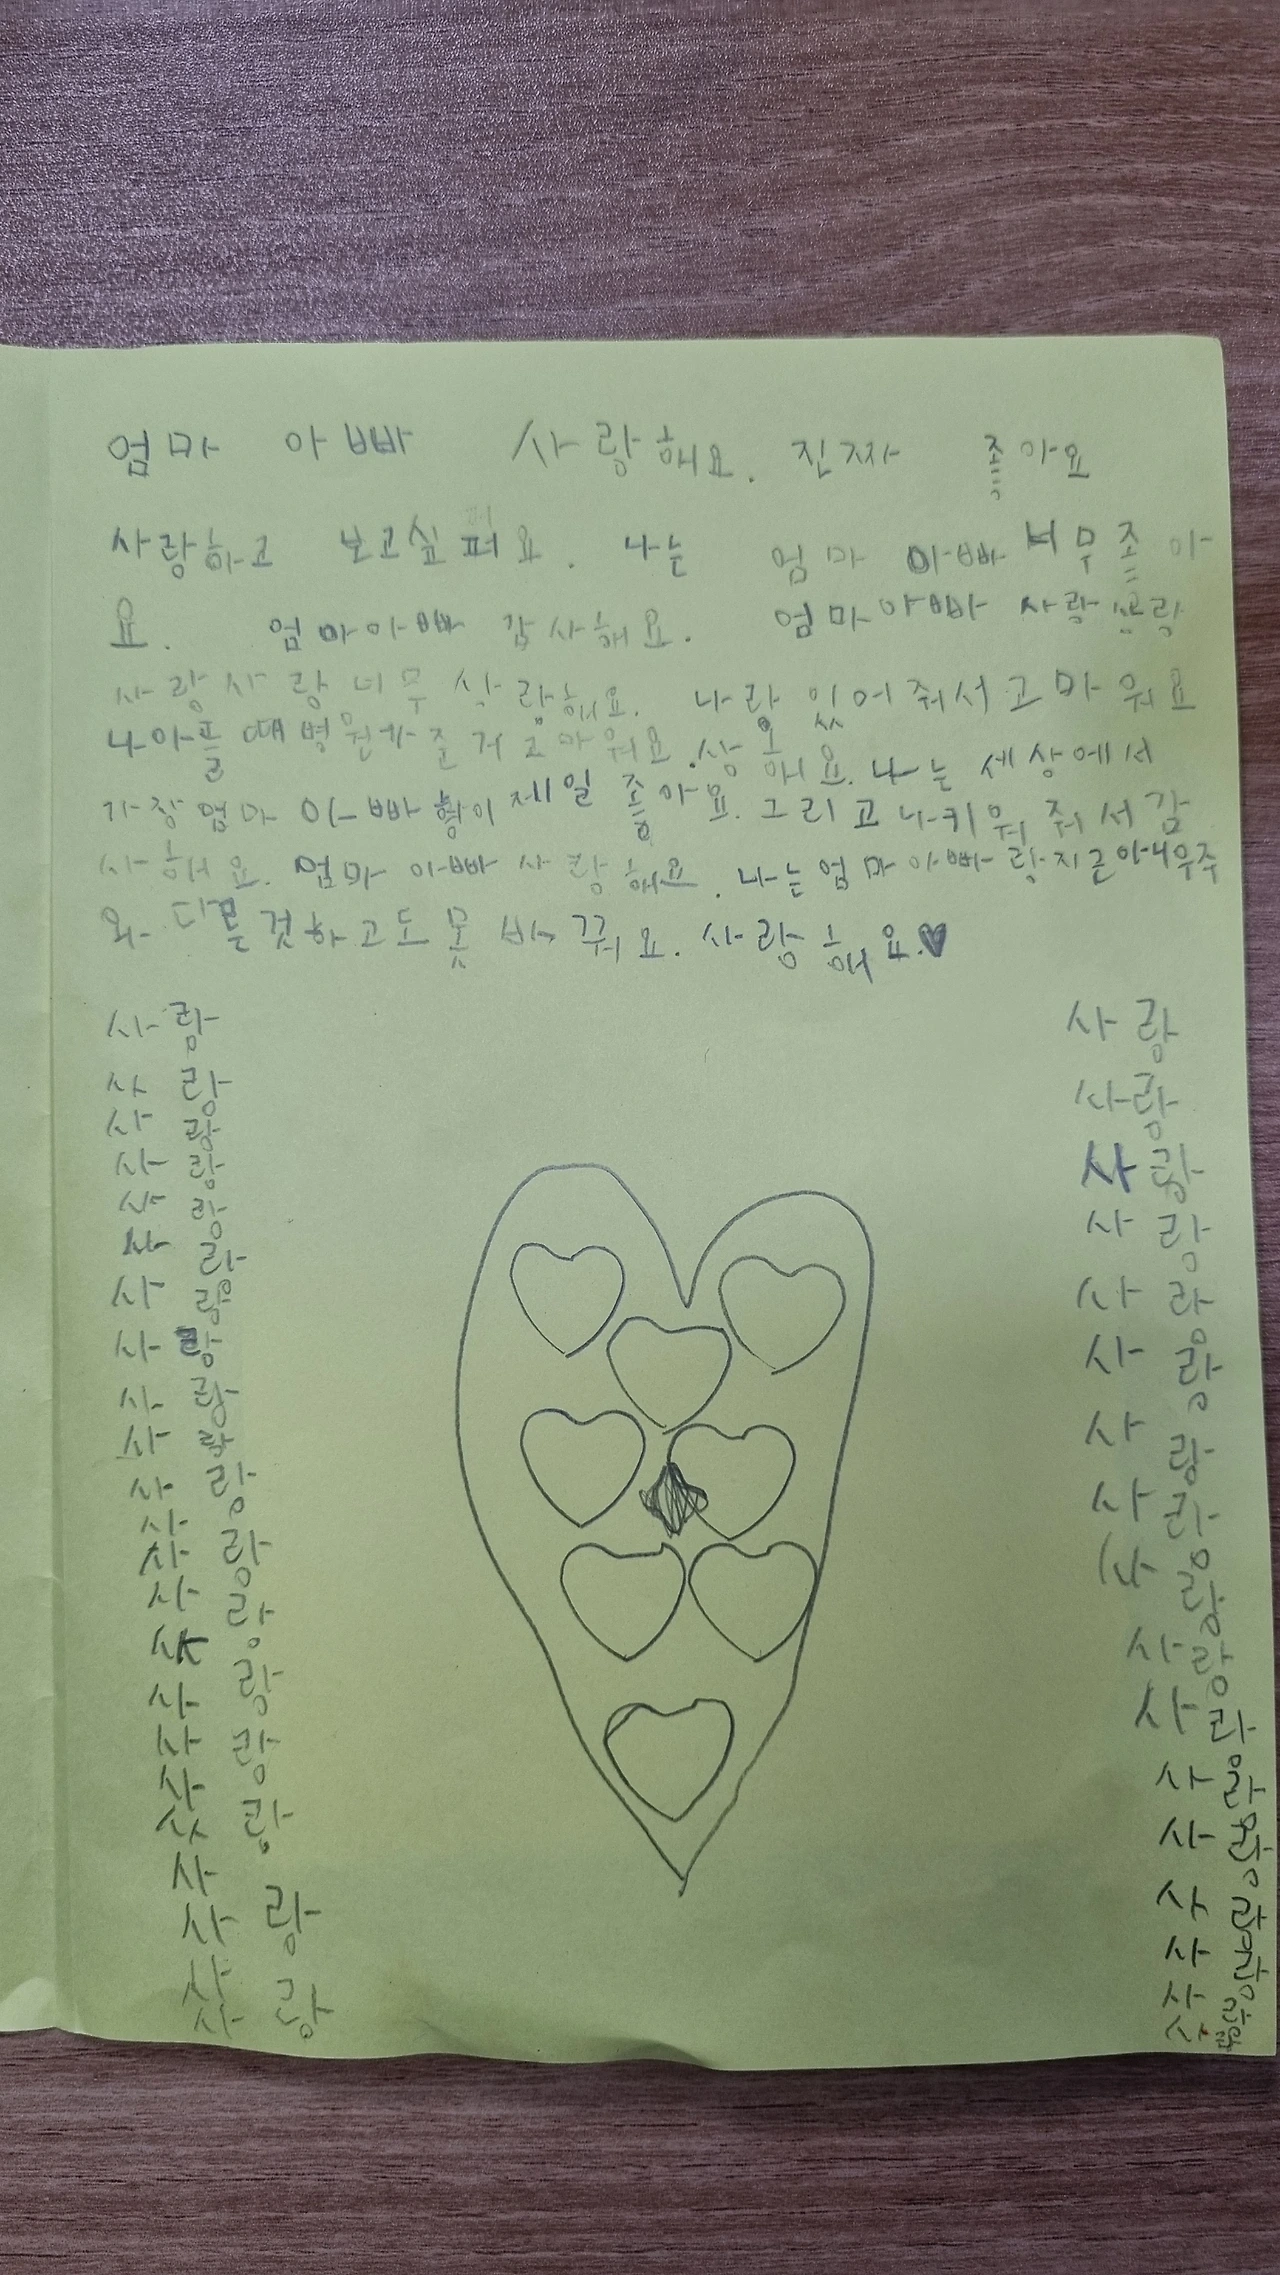 엄마 아빠 사랑해요. 진짜 좋아요
사랑하고 보고싶퍼요. 나는 엄마 아빠 너무 좋아
요. 엄마아빠 감사해요. 엄마아빠 사랑 사랑
사랑 사랑 너무 사랑해요. 나랑 있어줘서 고마워요
나아플때병원가줄거고마워요. 사랑해요. 나는 세상에서
가장 엄마 아빠 형이 제일 좋아요. 그리고 나키워줘서감
사해요. 엄마 아빠 사랑해요. 나는엄마아빠랑지군아니우주
와 다른것하고도못 바꿔요. 사랑해요.♥
사랑 사랑
사랑 사랑
사랑 사랑
사랑 사랑
사랑 사랑
사랑 사랑
사랑 사랑
사랑 사랑
사랑 사랑
사랑 사랑
사랑 사랑
사 사랑
사랑 사랑
사랑 사랑
사 사랑
사랑 사랑
사랑 사랑
사
사랑
사
사랑
사
사랑